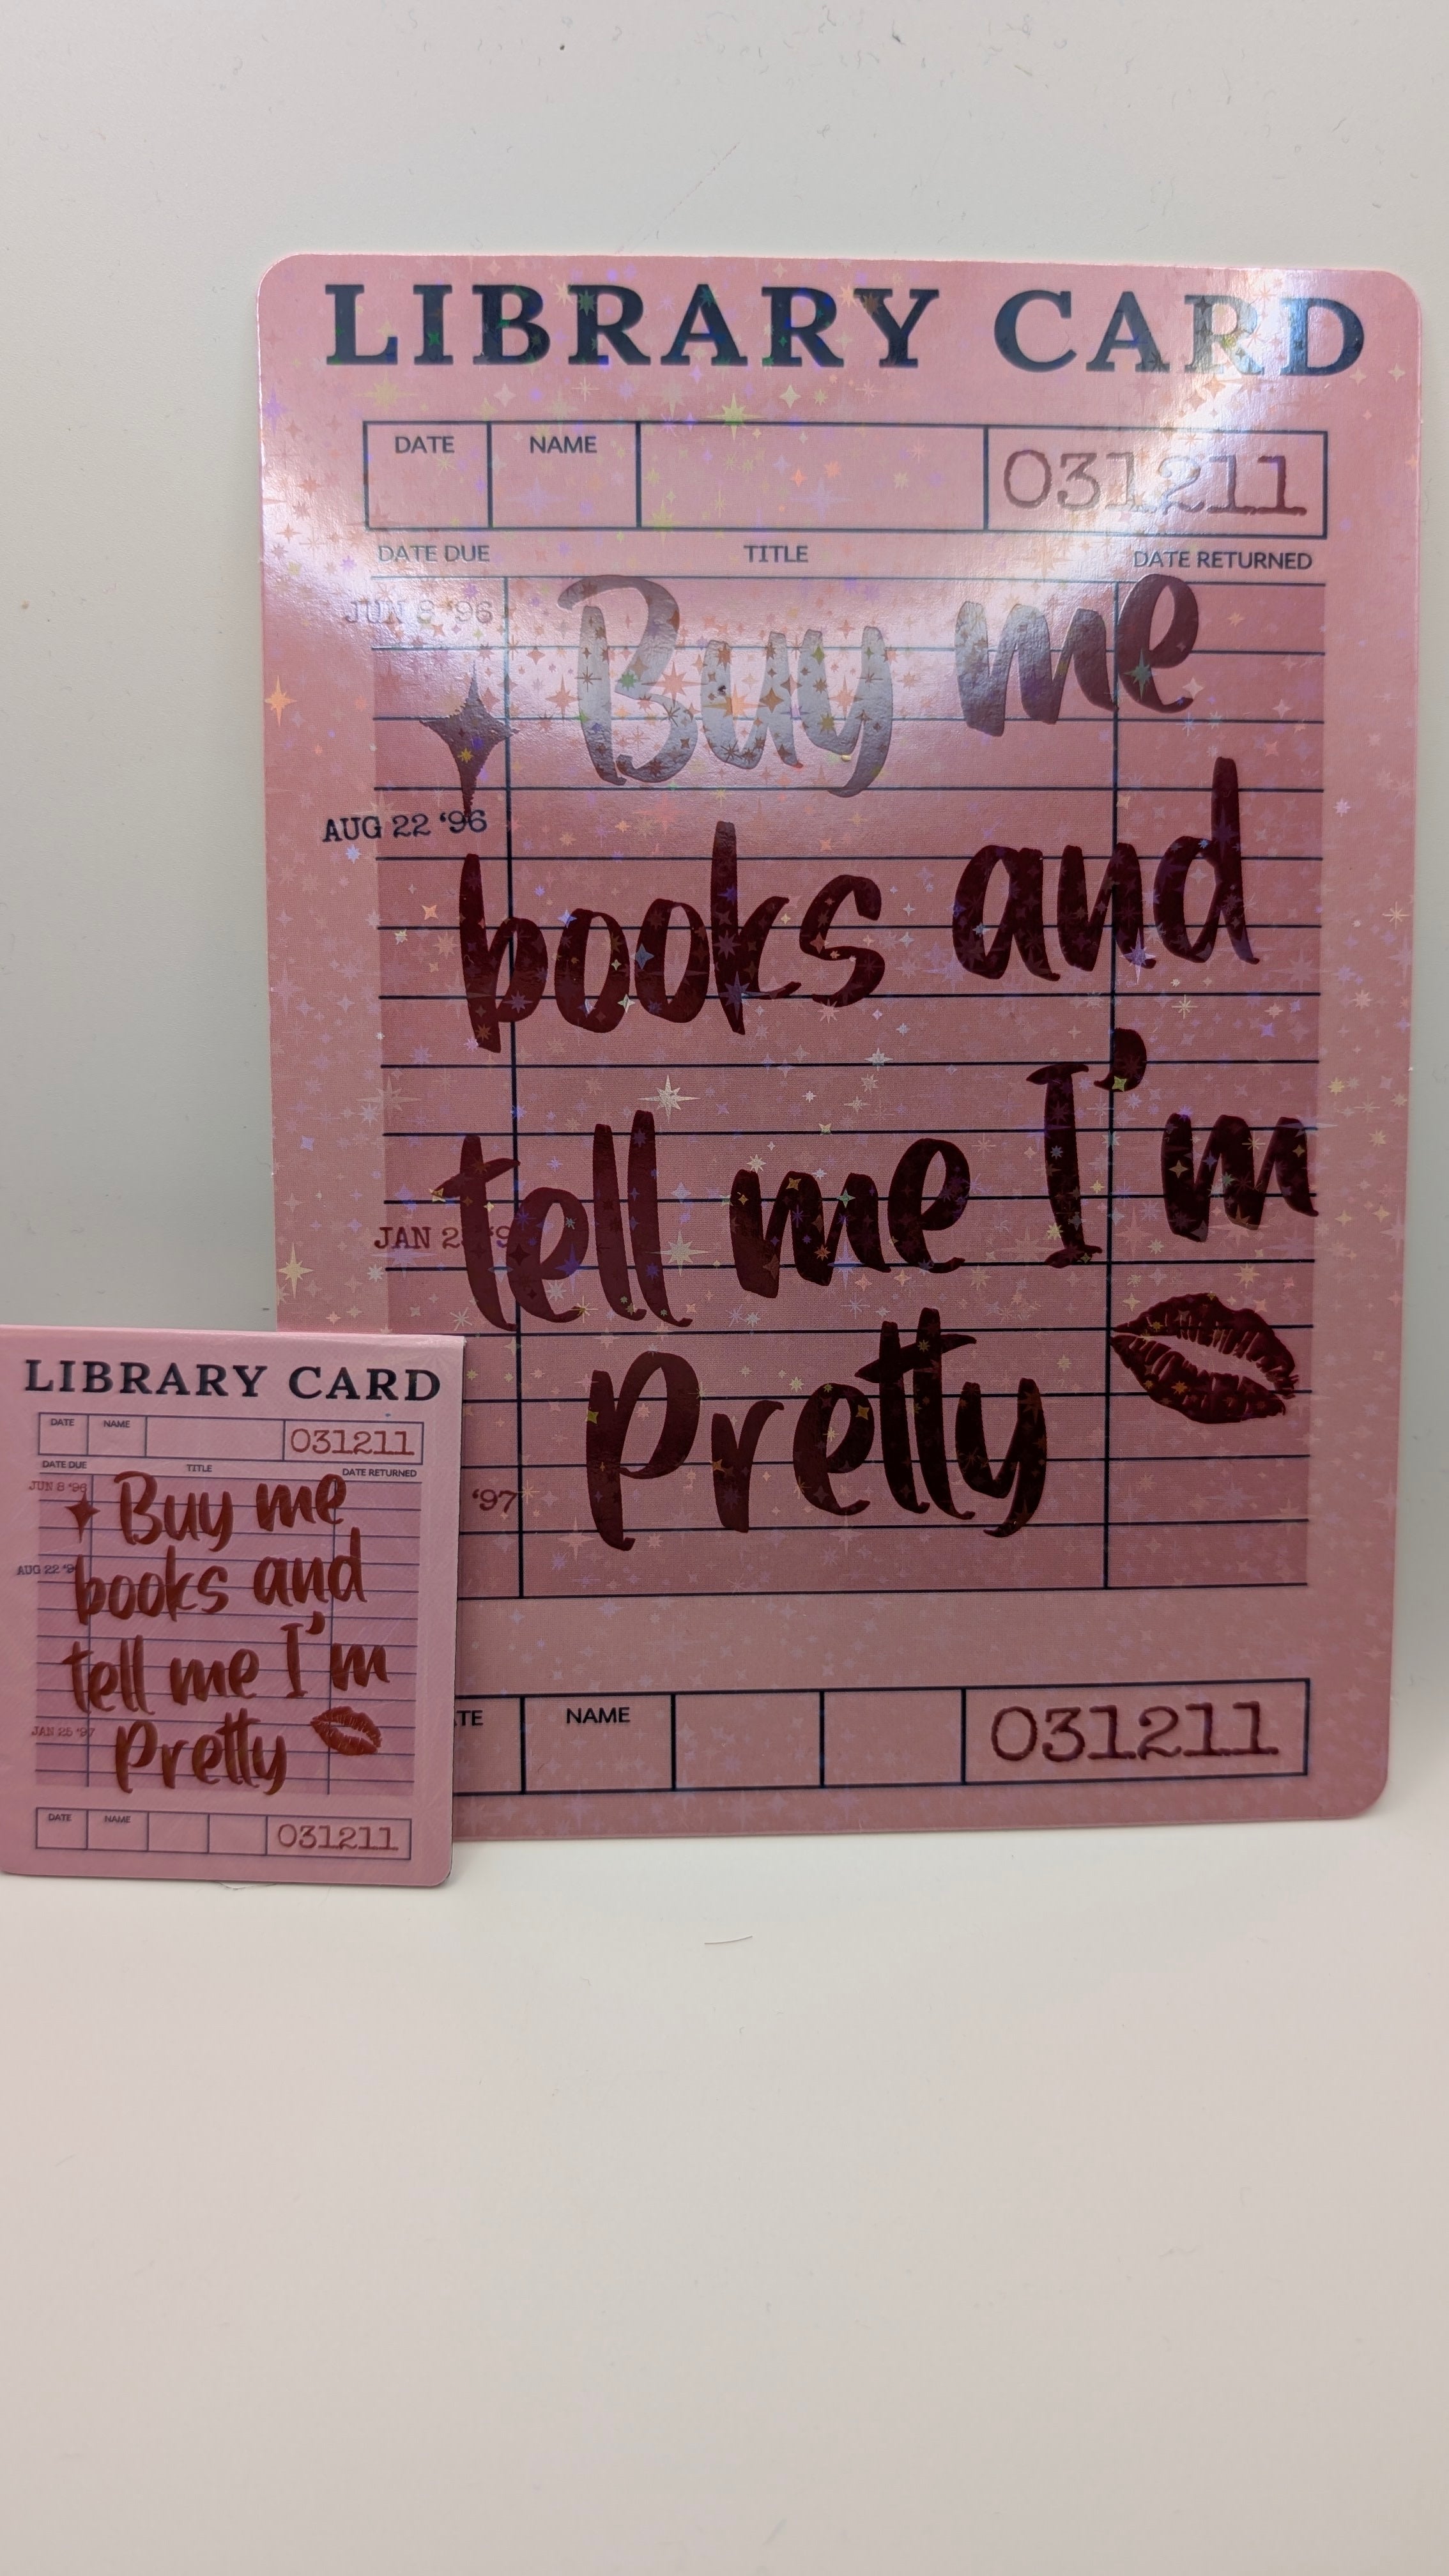 LIBRARY CARD
DATE NAME 031211
DATE DUE TITLE DATE RETURNED
JUN 8 '96
Buy me
AUG 22 '96
books and
tell me I'm
JAN 25 '9
Pretty
'97
NAME 031211
LIBRARY CARD
DATE NAME 031211
DATE DUE TITLE DATE RETURNED
JUN 8 '96
Buy me
AUG 22 '9
books and
tell me I'm
JAN 25 '97
Pretty
DATE NAME
031211